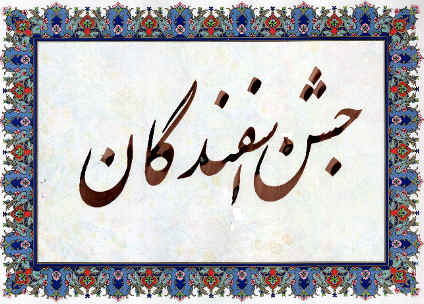 جشن اسفندگان